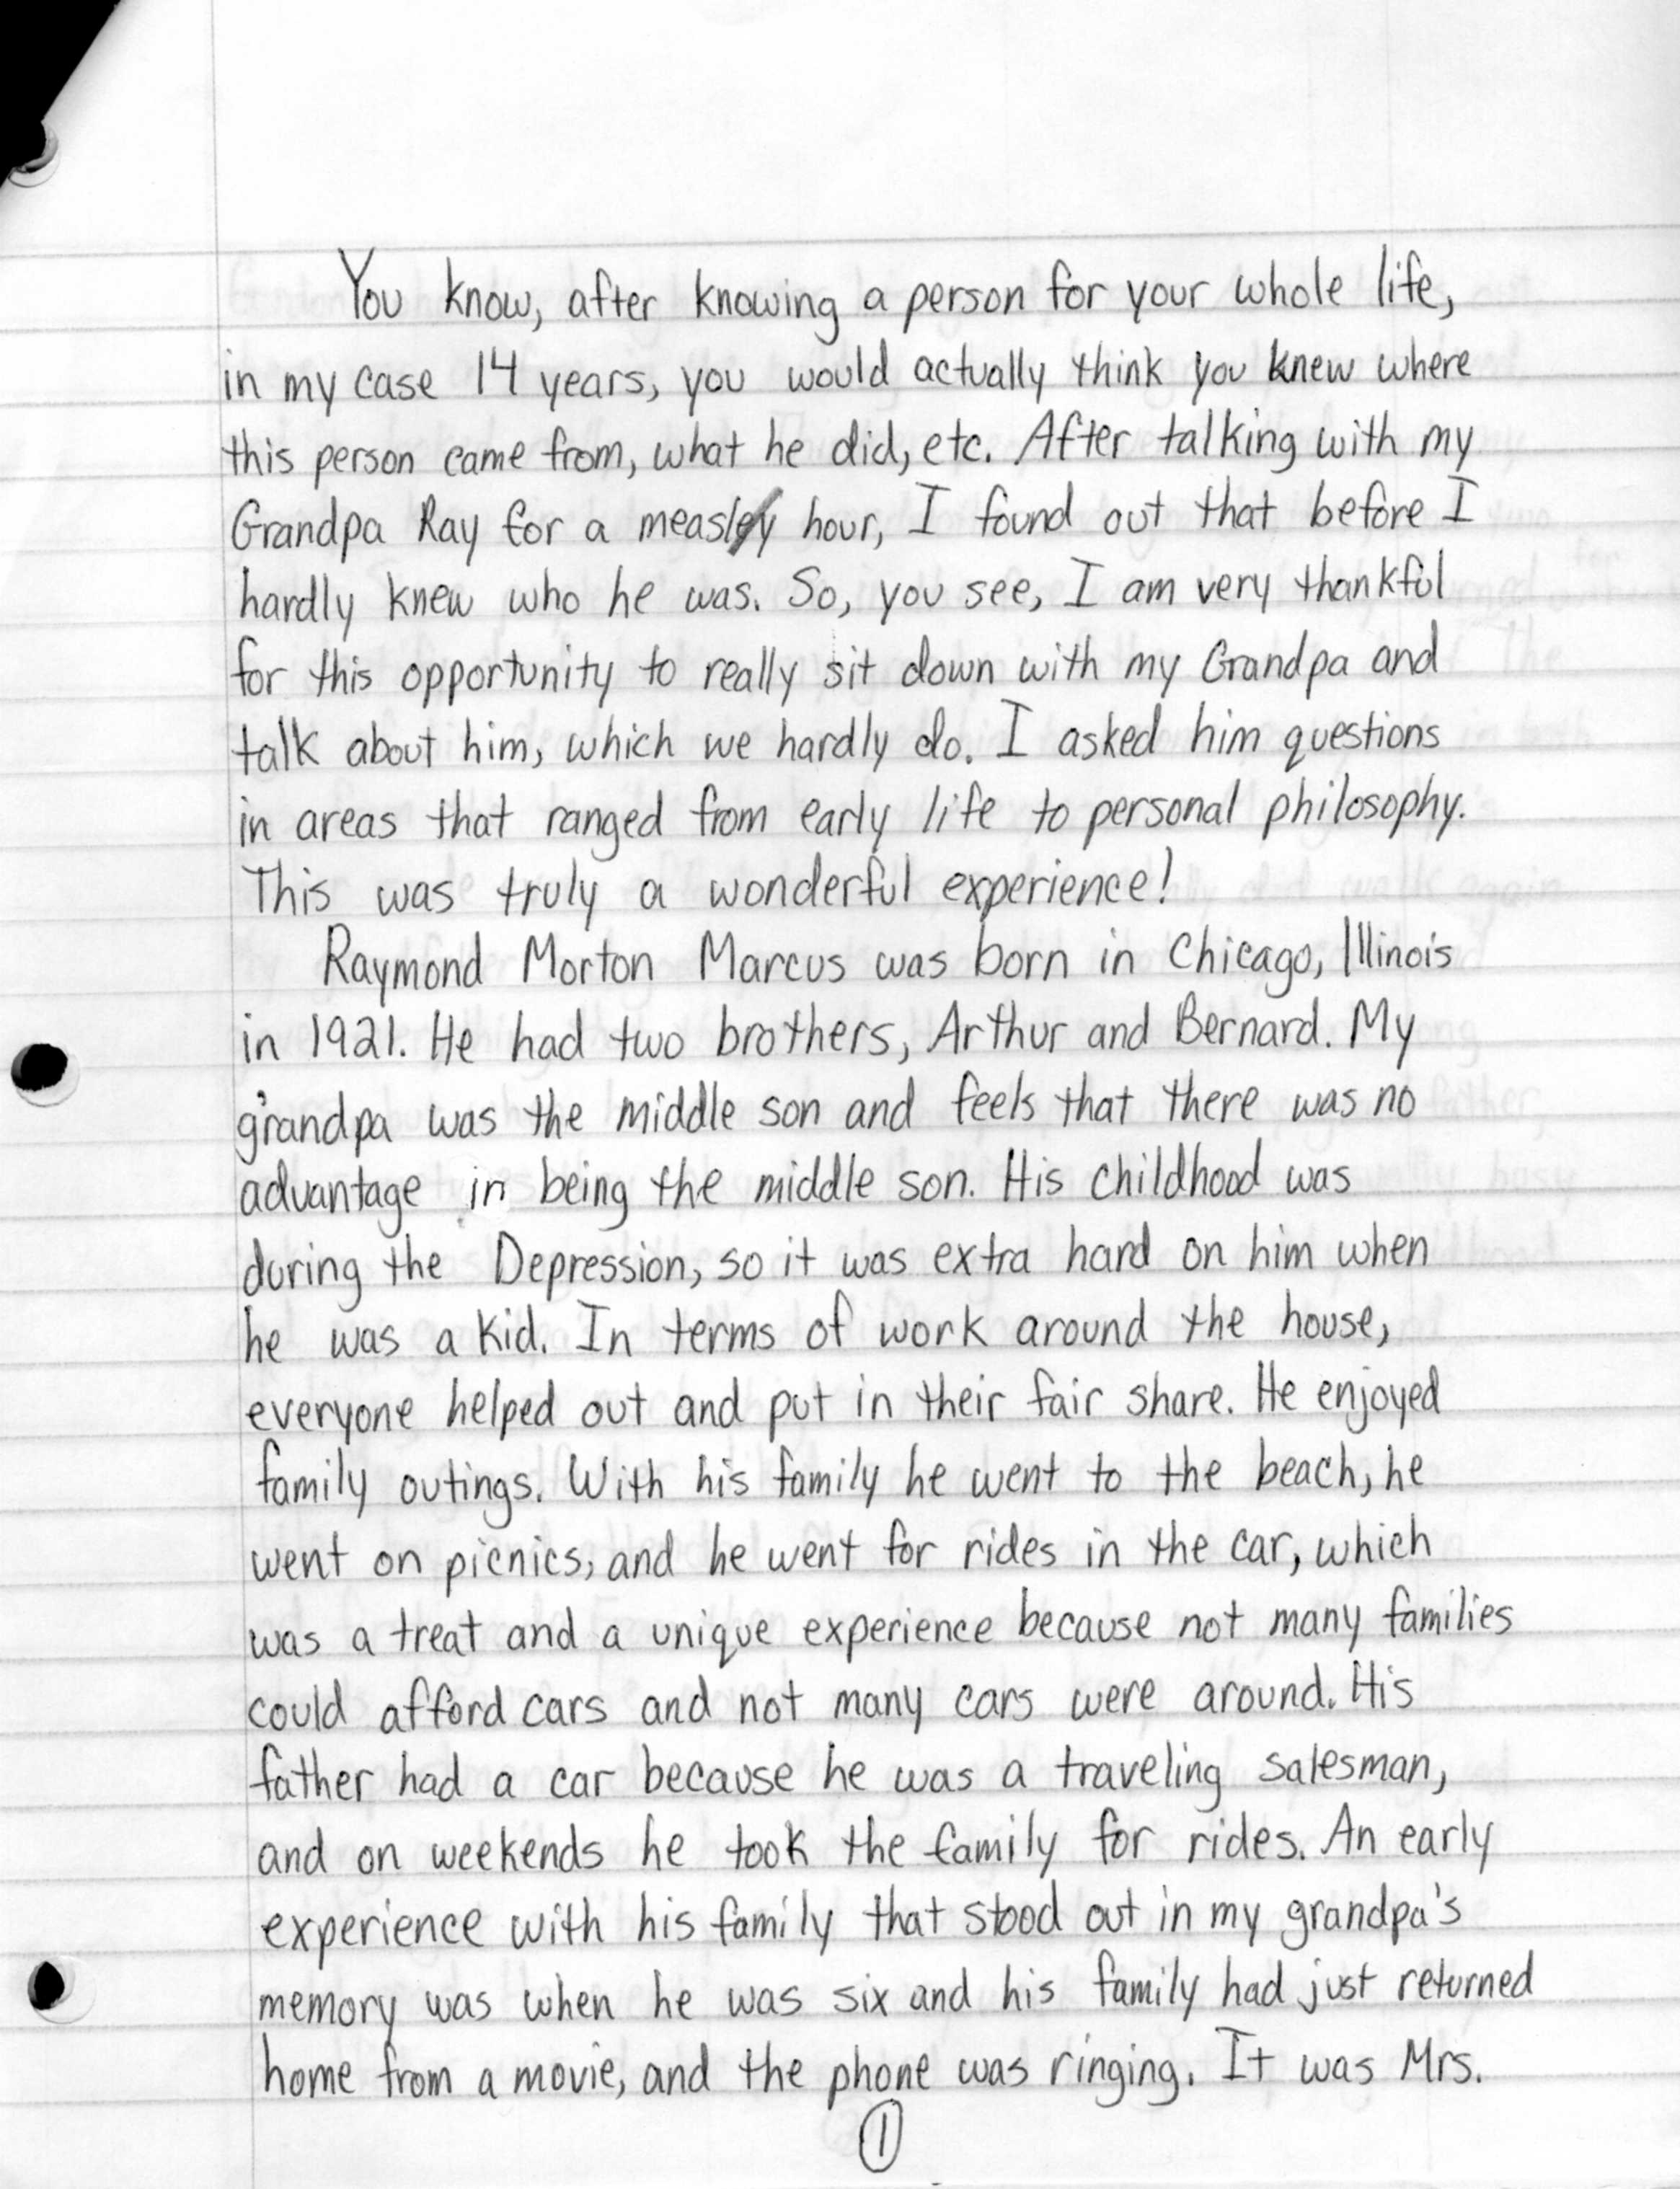 You know, after knowing a person for your whole life,
in my case 14 years, you would actually think you knew where
this person came from, what he did, etc. After talking with my
Grandpa Ray for a measly hour, I found out that before I
hardly knew who he was. So, you see, I am very thankful
for this opportunity to really sit down with my Grandpa and
talk about him, which we hardly do. I asked him questions
in areas that ranged from early life to personal philosophy.
This was truly a wonderful experience!
Raymond Morton Marcus was born in Chicago, Illinois
in 1921. He had two brothers, Arthur and Bernard. My
grandpa was the middle son and feels that there was no
advantage in being the middle son. His childhood was
during the Depression, so it was extra hard on him when
he was a kid. In terms of work around the house,
everyone helped out and put in their fair share. He enjoyed
family outings. With his family he went to the beach, he
went on picnics, and he went for rides in the car, which
was a treat and a unique experience because not many families
could afford cars and not many cars were around. His
father had a car because he was a traveling salesman,
and on weekends he took the family for rides. An early
experience with his family that stood out in my grandpa's
memory was when he was six and his family had just returned
home from a movie, and the phone was ringing. It was Mrs.
1